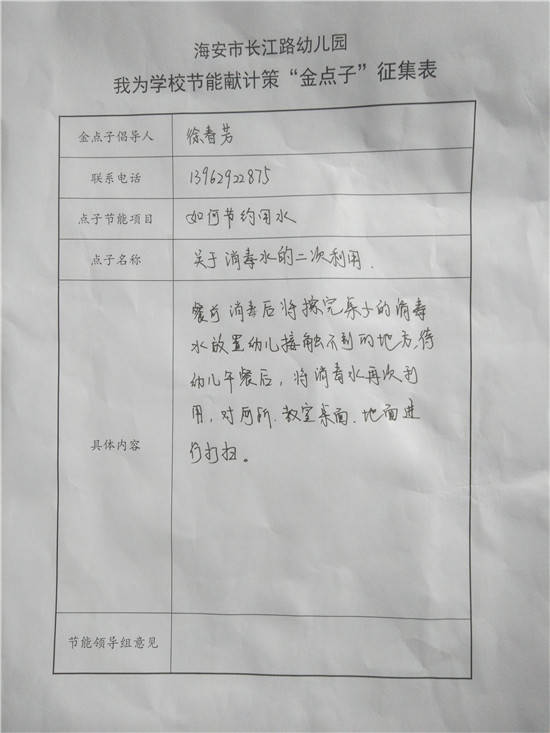 海安市长江路幼儿园
我为学校节能献计策“金点子”征集表
金点子倡导人 徐春芳
联系电话 13962922875
点子节能项目 如何节约用水
点子名称 关于消毒水的二次利用.
餐前消毒后将擦完桌子的消毒
水放置幼儿接触不到的地方,待
幼儿午餐后，将消毒水再次利
用，对厕所.教室桌面.地面进
行打扫。
具体内容
节能领导组意见